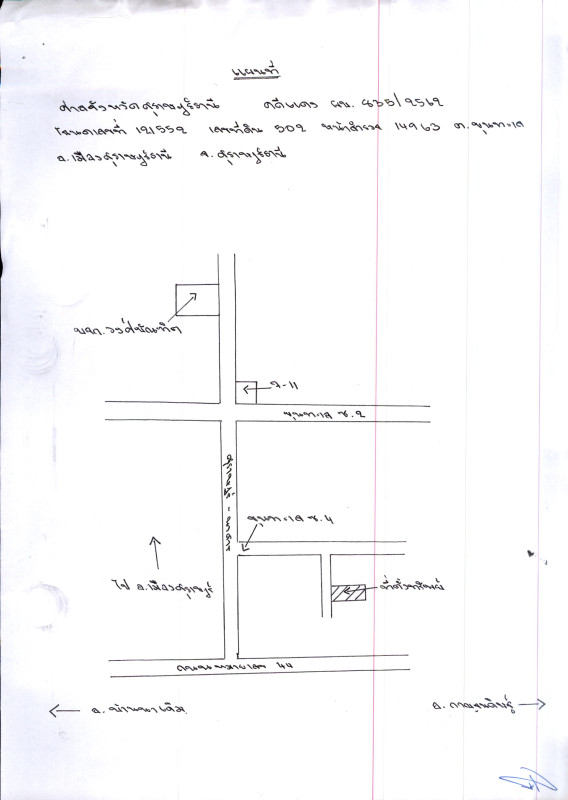 แผนที่
ศาลจังหวัดสุราษฎร์ธานี คดีแดง ผบ. 835/2562
โฉนดเลขที่ 121552 เลขที่ดิน 502 หน้าสำรวจ 14963 ต.ขุนทะเล
อ.เมืองสุราษฎร์ธานี จ.สุราษฎร์ธานี
หจก.
7-11
ขุนทะเล ซ.2
สุราษฎร์ - นาสาร
ขุนทะเล ซ.4
ไป อ.เมืองสุราษฎร์
ที่ตั้งทรัพย์
ถนนหมายเลข 44
อ.บ้านนาเดิม
อ.กาญจนดิษฐ์